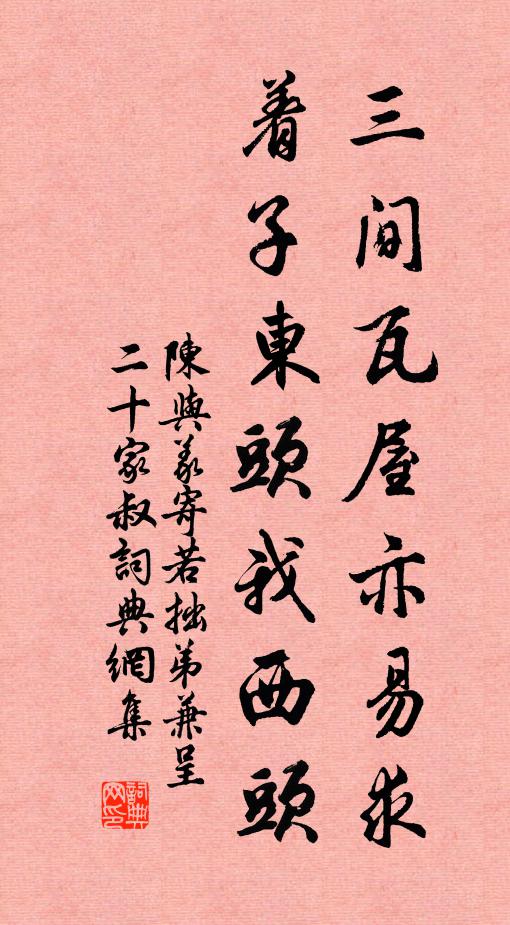 三間瓦屋亦易求
着子東頭我西頭
陳與義寄若拙弟兼呈
二十家叔詞典網集
詞典网印